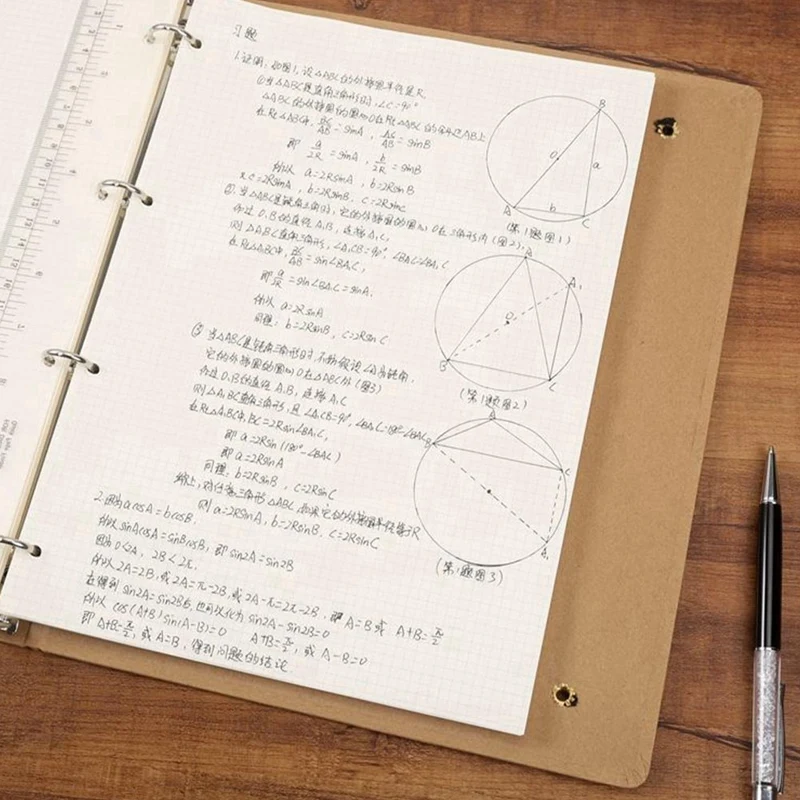 习题
1. 证明：如图1，设△ABC的外接圆半径是R.
①当△ABC是直角三角形时，∠C=90°
△ABC的外接圆的圆心O在Rt△ABC的斜边AB上
在Rt△ABC中，BC/AB=sinA，AC/AB=sinB
即 a/2R=sinA，b/2R=sinB
所以 a=2RsinA，b=2RsinB
又 c=2RsinA，b=2RsinB，c=2RsinC
②当△ABC是锐角三角形时，它的外接圆的圆心O在三角形内（图2），
作过O、B的直径A₁B，连接A₁C，
则△A₁BC直角三角形，∠A₁CB=90°，∠BAC=∠BA₁C
在Rt△A₁BC中，BC/A₁B=sin∠BA₁C，
即 a/2R=sin∠BA₁C=sinA，
所以 a=2RsinA
同理：b=2RsinB，c=2RsinC
③当△ABC是钝角三角形时，不妨假设∠A为钝角，
它的外接圆的圆心O在△ABC外（图3）
作过O、B的直径A₁B，连接A₁C
则△A₁BC直角三角形，且∠A₁CB=90°，∠BA₁C=180°-∠BAC
在Rt△A₁BC中，BC=2Rsin∠BA₁C，
即 a=2Rsin(180°-∠BAC)
即 a=2RsinA
同理：b=2RsinB，c=2RsinC
综上，对任意三角形△ABC，如果它的外接圆半径等于R
则 a=2RsinA，b=2RsinB，c=2RsinC
2. 因为acosA=bcosB，
所以sinAcosA=sinBcosB，即sin2A=sin2B
因为0<2A，2B<2π，
所以2A=2B，或2A=π-2B，或2A-π=2π-2B，即A=B或 A+B=π/2
在得到sin2A=sin2B后，也可以化为sin2A-sin2B=0
所以 cos(A+B)sin(A-B)=0 A+B=π/2，或A-B=0
即A+B=π/2，或A=B，得到问题的结论
B
O
a
A
b
C
（第1题图1）
A
A₁
O
B
C
（第1题图2）
A
B
C
A₁
（第1题图3）